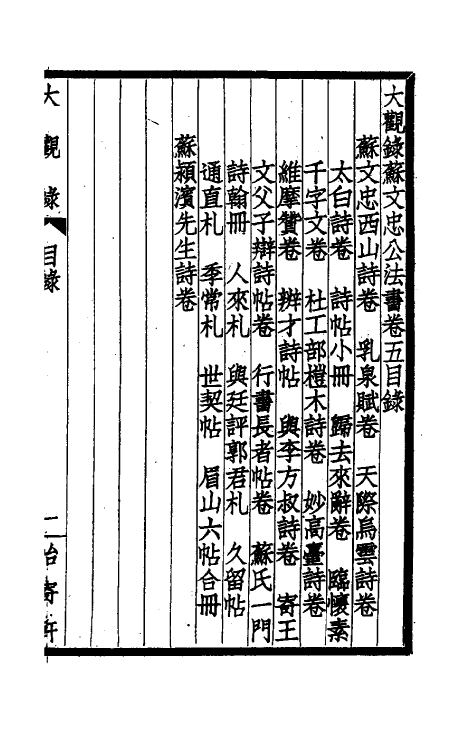 大觀錄蘇文忠公法書卷五目錄
蘇文忠西山詩卷　乳泉賦卷　天際烏雲詩卷
太白詩卷　詩帖小冊　歸去來辭卷　臨懷素
千字文卷　杜工部榿木詩卷　妙高臺詩卷
維摩贊卷　辨才詩帖　與李方叔詩卷　寄王
文父子辯詩帖卷　行書長者帖卷　蘇氏一門
詩翰冊　人來札　與廷評郭君札　久留帖
通直札　季常札　世契帖　眉山六帖合冊
蘇潁濱先生詩卷
大觀錄　目錄　二